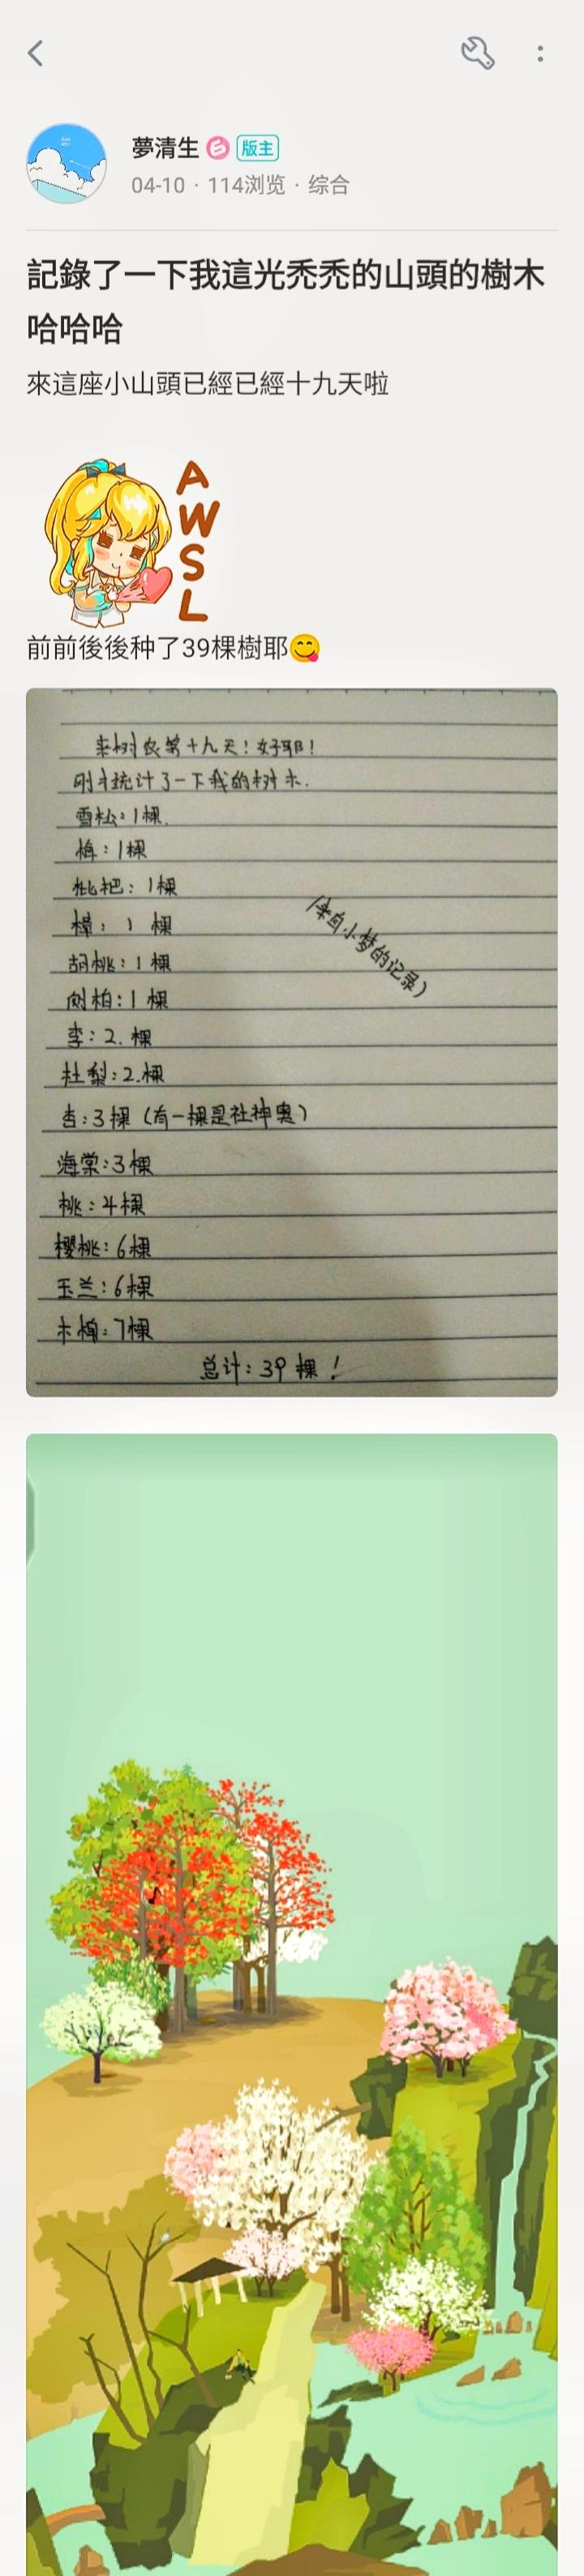 夢清生 版主
04-10 · 114浏览 · 综合
記錄了一下我這光禿禿的山頭的樹木
哈哈哈
來這座小山頭已經已經十九天啦
AWSL
前前後後种了39棵樹耶
来树农第十九天！好耶！
刚才统计了一下我的树木.
雪松：1棵.
梅：1棵
枇杷：1棵
樟：1棵
（来自小梦的记录）
胡桃：1棵
侧柏：1棵
李：2.棵
杜梨：2.棵
杏：3棵（有一棵是社神奥）
海棠：3棵
桃：4棵
樱桃：6棵
玉兰：6棵
木棉：7棵
总计：39棵！